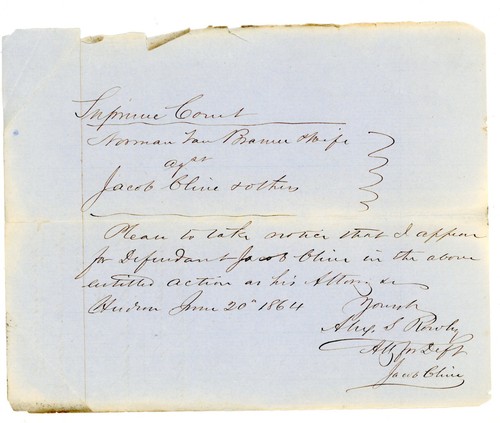 Supreme Court
Norman Van Bramer & Wife
agst
Jacob Cline & others
Please to take notice that I appear
for Defendant Jacob Cline in the above
entitled action as his Attorney &c
Hudson June 20th 1864
Yours &c
Alex. S. Rowly
Atty for Deft
Jacob Cline